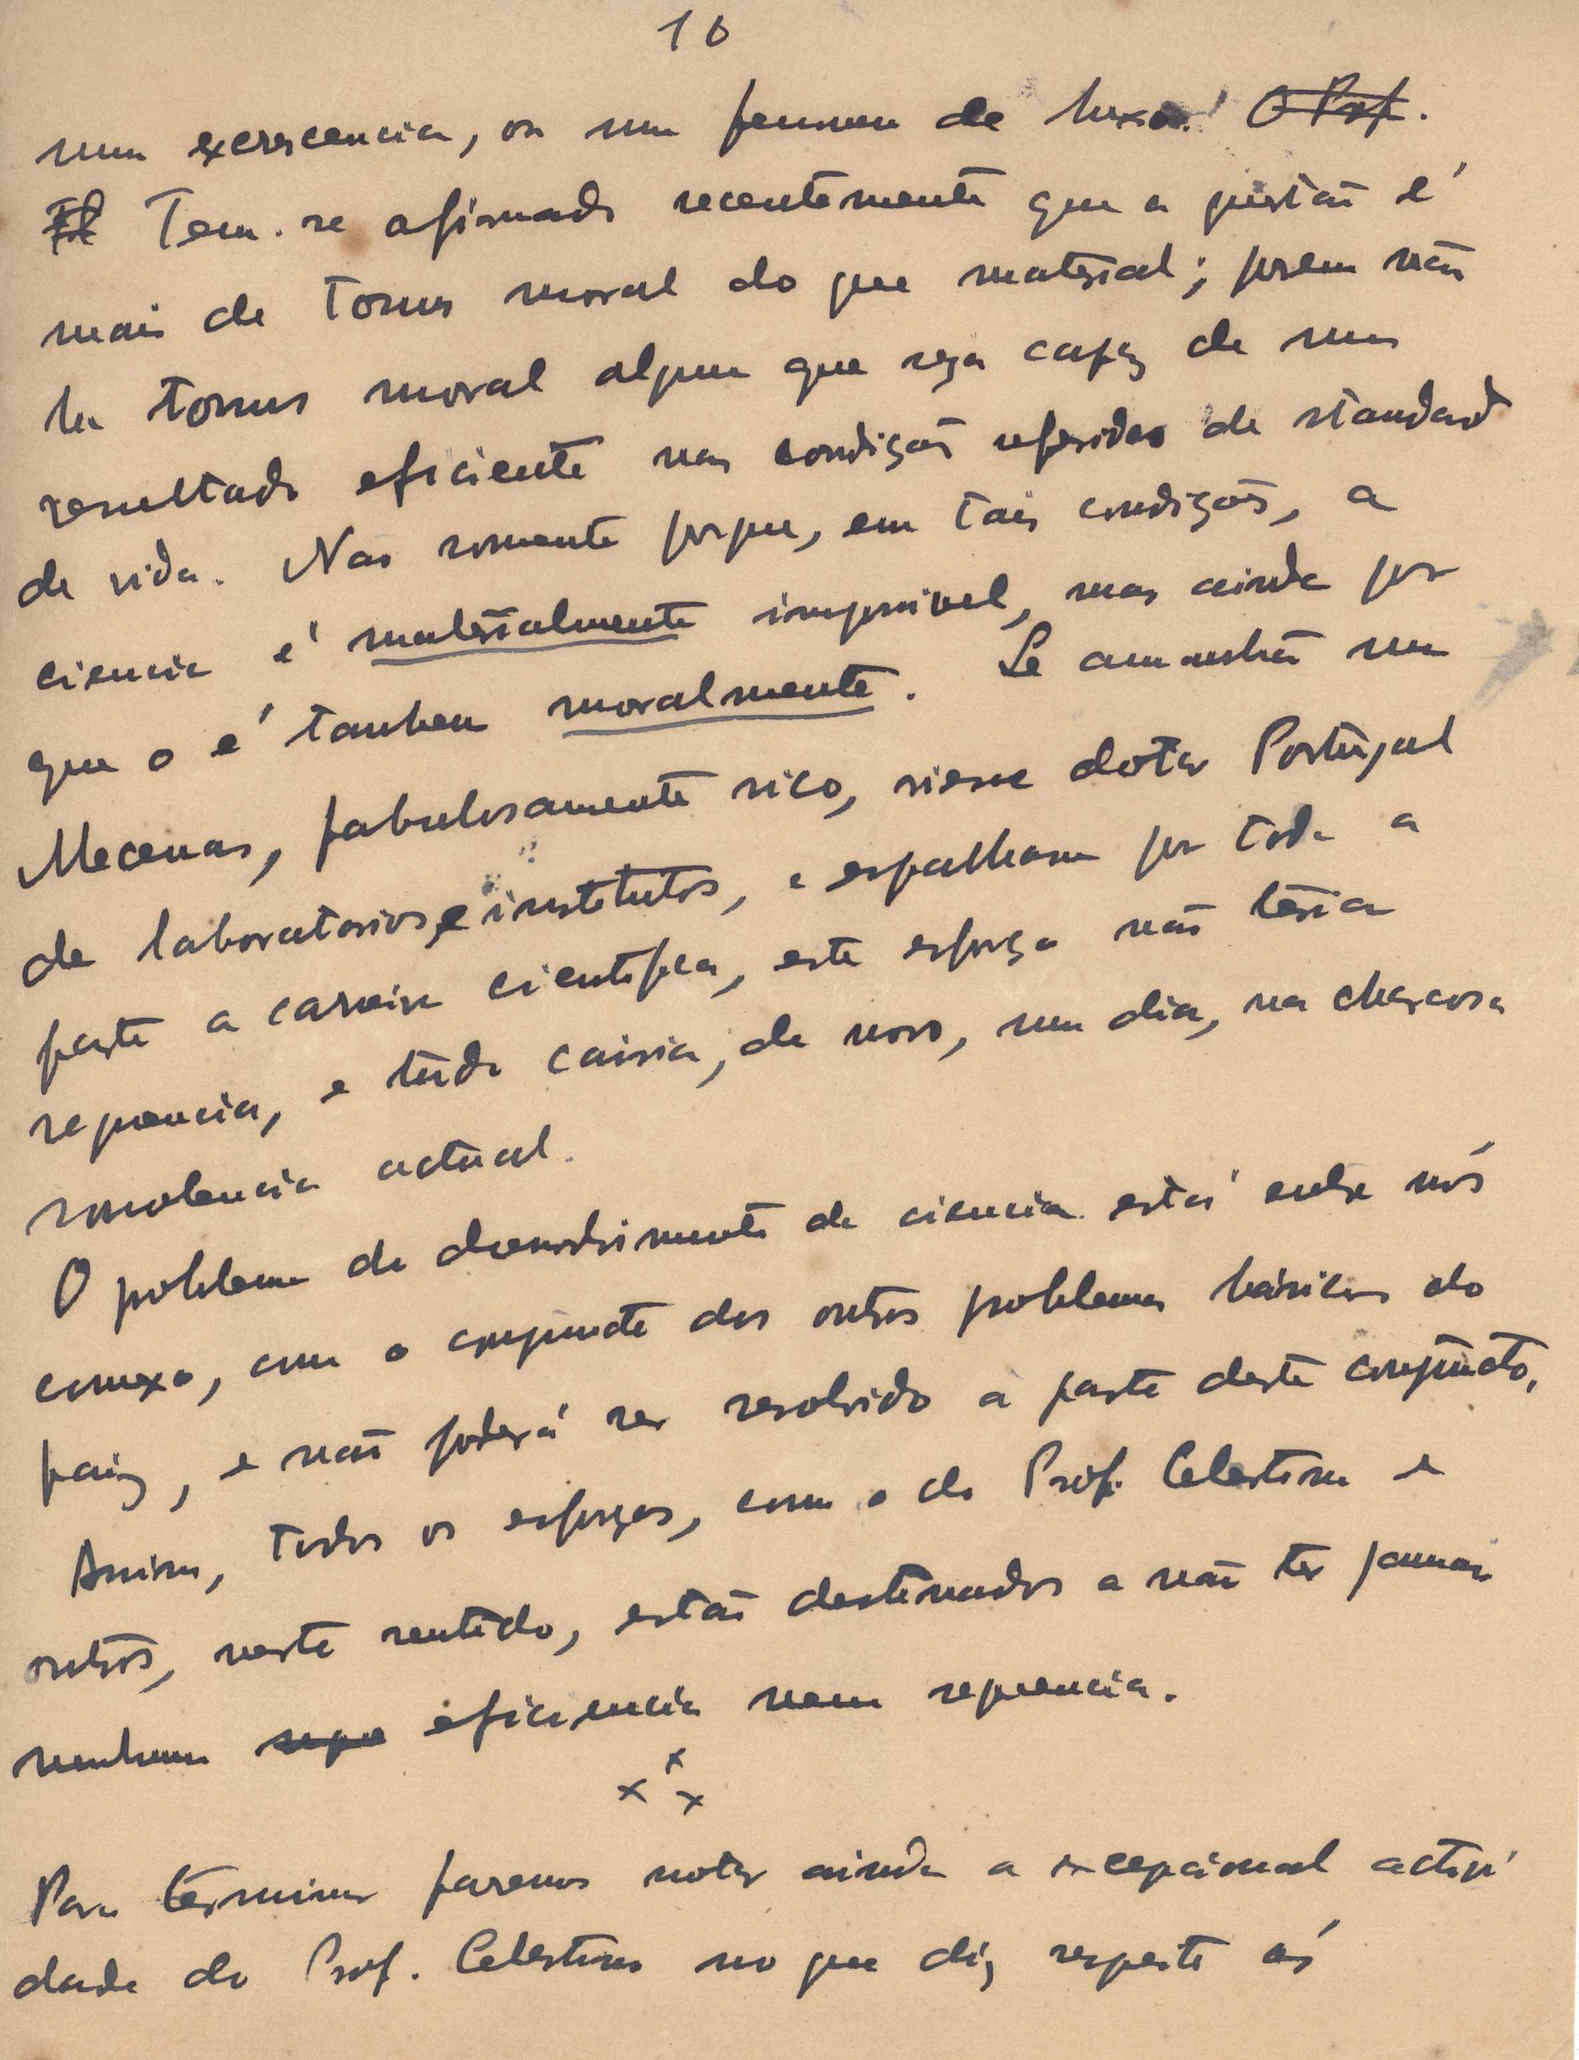 10
uma excrescencia, ou um fenomeno de luxo! O Prof.
Tem-se afirmado recentemente que a questão é
mais de tonus moral do que material; porem não
ha tonus moral algum que seja capaz de um
resultado eficiente nas condições referidas de standard
de vida. Não somente porque, em tais condições, a
ciencia é materialmente impossivel, mas ainda por
que o é tambem moralmente. Se ammanhã um
Mecenas, fabulosamente rico, viesse dotar Portugal
de laboratorios, e institutos, e espalhasse por toda a
parte a carreira cientifica, este esforço não teria
sequencia, e tudo cairia, de novo, um dia, na charcosa
sonolencia actual.
O problema do desenvolvimento da ciencia está entre nós
conexo, com o conjuncto dos outros problemas básicos do
paiz, e não poderá ser resolvido a parte deste conjuncto,
Assim, todos os esforços, como o do Prof. Celestino e
outros, neste sentido, estão destinados a não ter jamais
nenhuma eficiencia nem sequencia.
x x x
Para terminar faremos notar ainda a excepcional activi
dade do Prof. Celestino no que diz respeito ás